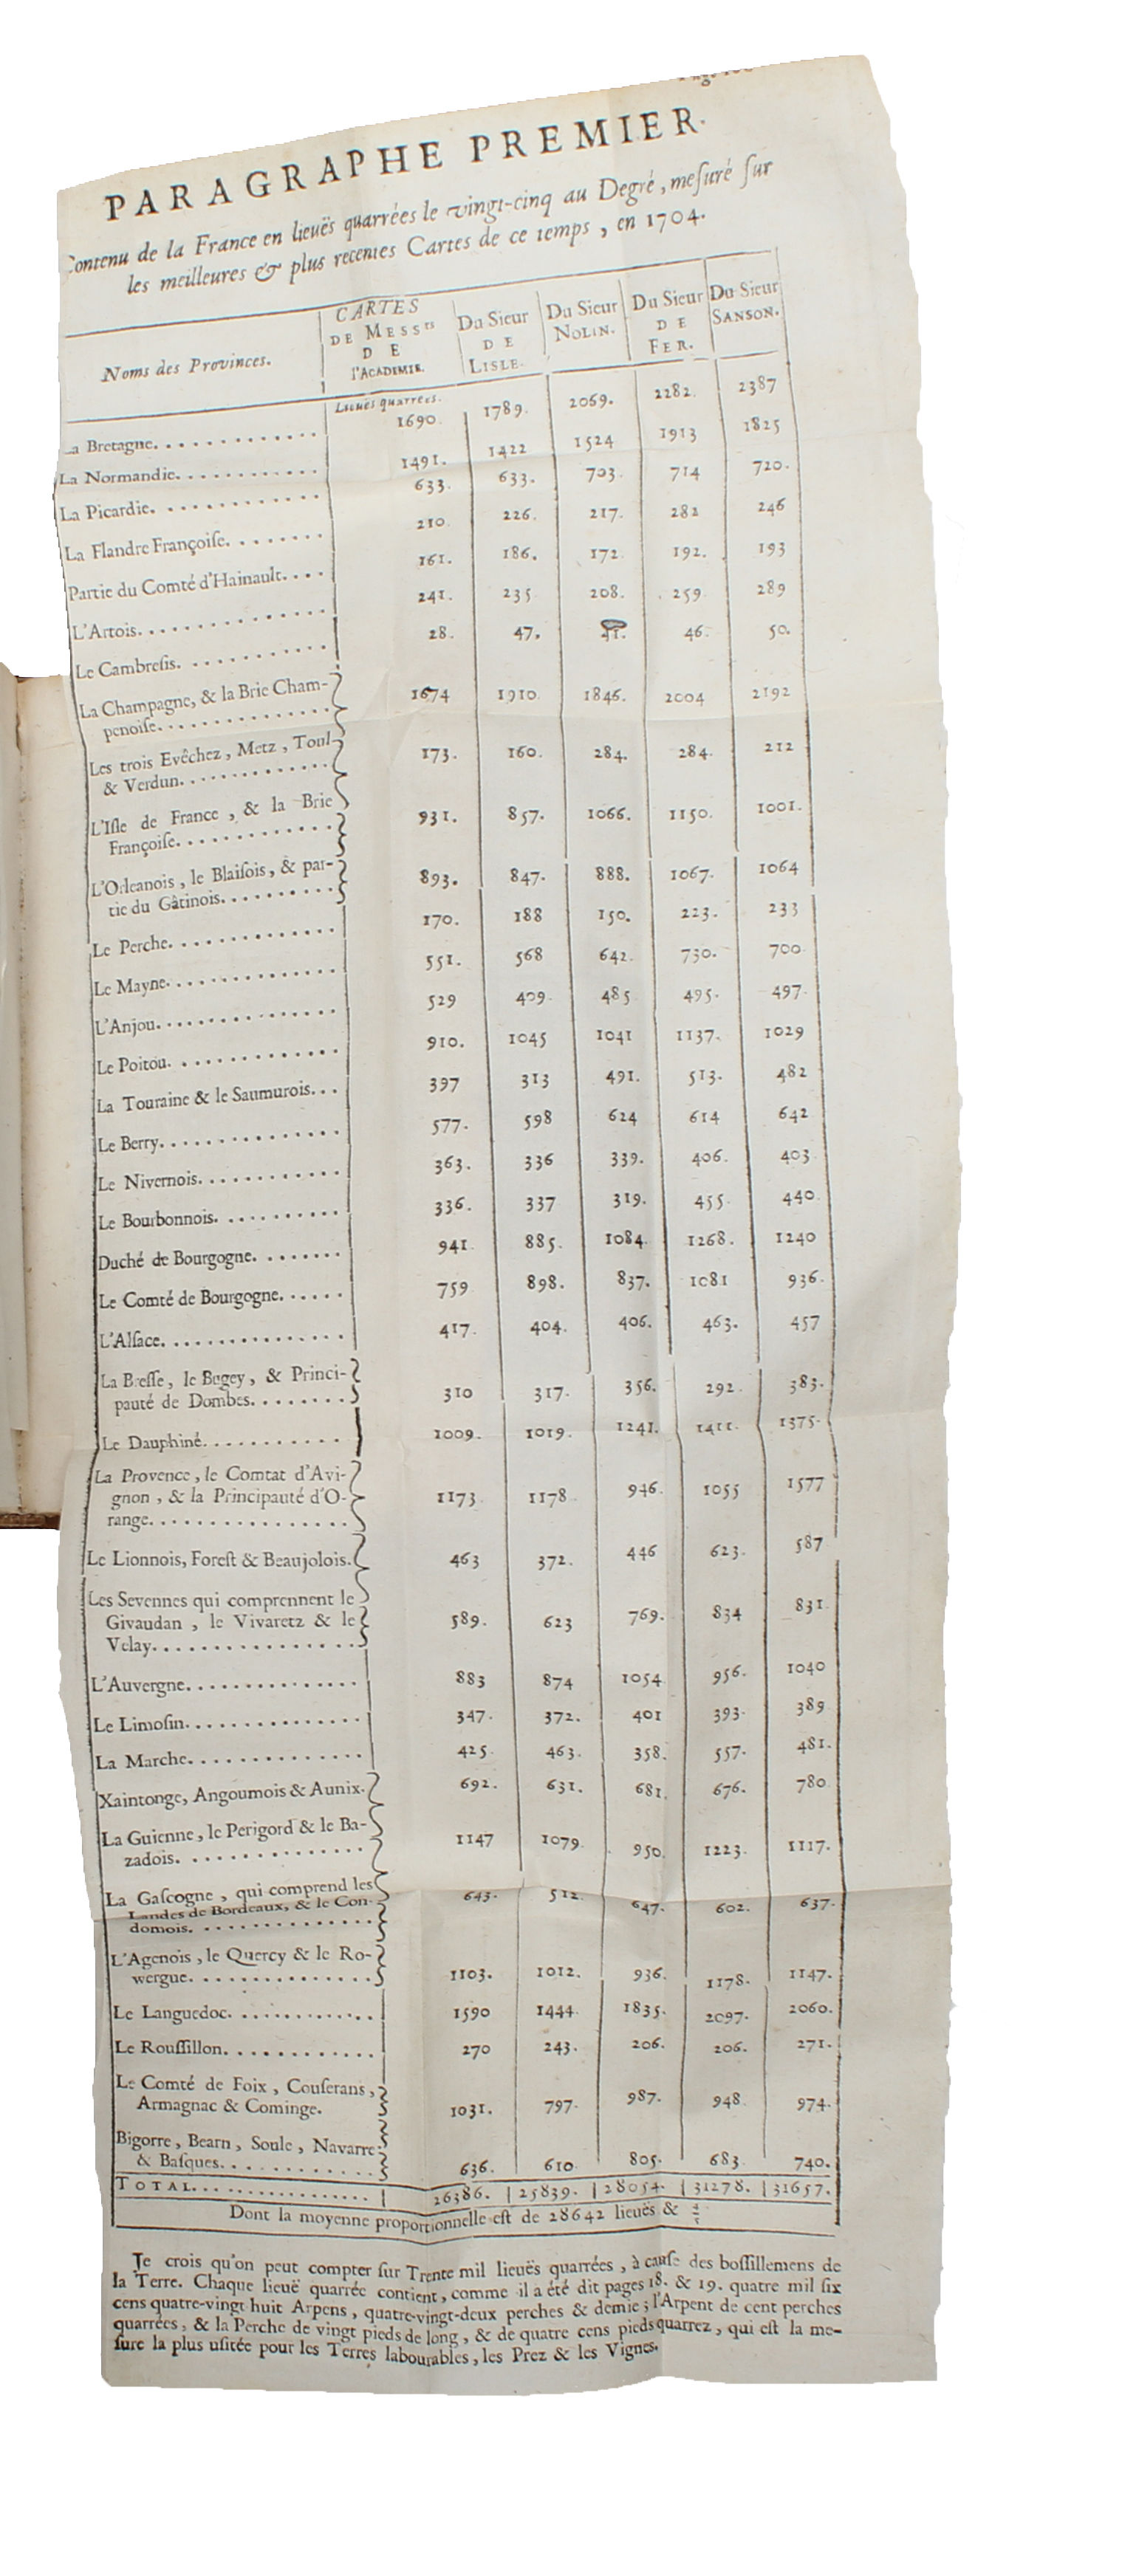 PARAGRAPHE PREMIER.
Contenu de la France en lieuës quarrées le vingt-cinq au Degré, meſuré ſur
les meilleures & plus recentes Cartes de ce temps, en 1704.
Noms des Provinces. CARTES DE MESSrs DE l'ACADEMIE. Du Sieur DE LISLE. Du Sieur NOLIN. Du Sieur DE FER. Du Sieur SANSON.
Lieuës quarrées.
La Bretagne............. 1690. 1789. 2069. 2282. 2387
La Normandie............ 1491. 1422 1524 1913 1825
La Picardie............ 633. 633. 703. 714 720.
La Flandre Françoiſe........ 210. 226. 217. 282 246
Partie du Comté d'Hainault.... 161. 186. 172. 192. 193
L'Artois............... 241. 235 208. 259 289
Le Cambreſis............ 28. 47. 46. 50.
La Champagne, & la Brie Cham-
penoiſe............... 1674 1910. 1846. 2004 2192
Les trois Evêchez, Metz, Toul
& Verdun............. 173. 160. 284. 284. 212
L'Iſle de France, & la Brie
Françoiſe............. 931. 857. 1066. 1150. 1001.
L'Orleanois, le Blaiſois, & par-
tie du Gâtinois.......... 893. 847. 888. 1067. 1064
Le Perche............. 170. 188 150. 223. 233
Le Mayne............. 551. 568 642. 730. 700
L'Anjou.............. 529 409. 485 495. 497.
Le Poitou............. 910. 1045 1041 1137. 1029
La Touraine & le Saumurois... 397 313 491. 513. 482
Le Berry.............. 577. 598 624 614 642
Le Nivernois........... 363. 336 339. 406. 403
Le Bourbonnois.......... 336. 337 319. 455 440.
Duché de Bourgogne........ 941 885. 1084. 1268. 1240
Le Comté de Bourgogne...... 759 898. 837. 1081 936.
L'Alſace.............. 417. 404. 406. 463. 457
La Breſſe, le Bugey, & Princi-
pauté de Dombes........ 310 317. 356. 292. 383.
Le Dauphiné........... 1009. 1019. 1241. 1411. 1375.
La Provence, le Comtat d'Avi-
gnon, & la Principauté d'O-
range................ 1173 1178 946. 1055 1577
Le Lionnois, Foreſt & Beaujolois. 463 372. 446 623. 587
Les Sevennes qui comprennent le
Givaudan, le Vivaretz & le
Velay................ 589. 623 769. 834 831.
L'Auvergne.............. 883 874 1054 956. 1040
Le Limoſin.............. 347. 372. 401 393. 389
La Marche............. 425. 463. 358. 557. 481.
Xaintonge, Angoumois & Aunix. 692. 631. 681. 676. 780
La Guienne, le Perigord & le Ba-
zadois............... 1147 1079. 950. 1223. 1117.
La Gaſcogne, qui comprend les
Landes de Bordeaux, & le Con-
domois............... 643. 512. 647. 602. 637.
L'Agenois, le Quercy & le Ro-
wergue............... 1103. 1012. 936. 1178. 1147.
Le Languedoc............ 1590 1444. 1835. 2097. 2060.
Le Rouſſillon............ 270 243. 206. 206. 271.
Le Comté de Foix, Couſerans,
Armagnac & Cominge. 1031. 797. 987. 948. 974.
Bigorre, Bearn, Soule, Navarre
& Baſques............ 636. 610 805. 683. 740.
TOTAL................ 26386. 25839. 28054. 31278. 31657.
Dont la moyenne proportionnelle eſt de 28642 lieuës &
Je crois qu'on peut compter ſur Trente mil lieuës quarrées, à cauſe des boſſillemens de
la Terre. Chaque lieuë quarrée contient, comme il a été dit pages 18. & 19. quatre mil ſix
cens quatre-vingt huit Arpens, quatre-vingt-deux perches & demie; l'Arpent de cent perches
quarrées, & la Perche de vingt pieds de long, & de quatre cens pieds quarrez, qui eſt la me-
ſure la plus uſitée pour les Terres labourables, les Prez & les Vignes.